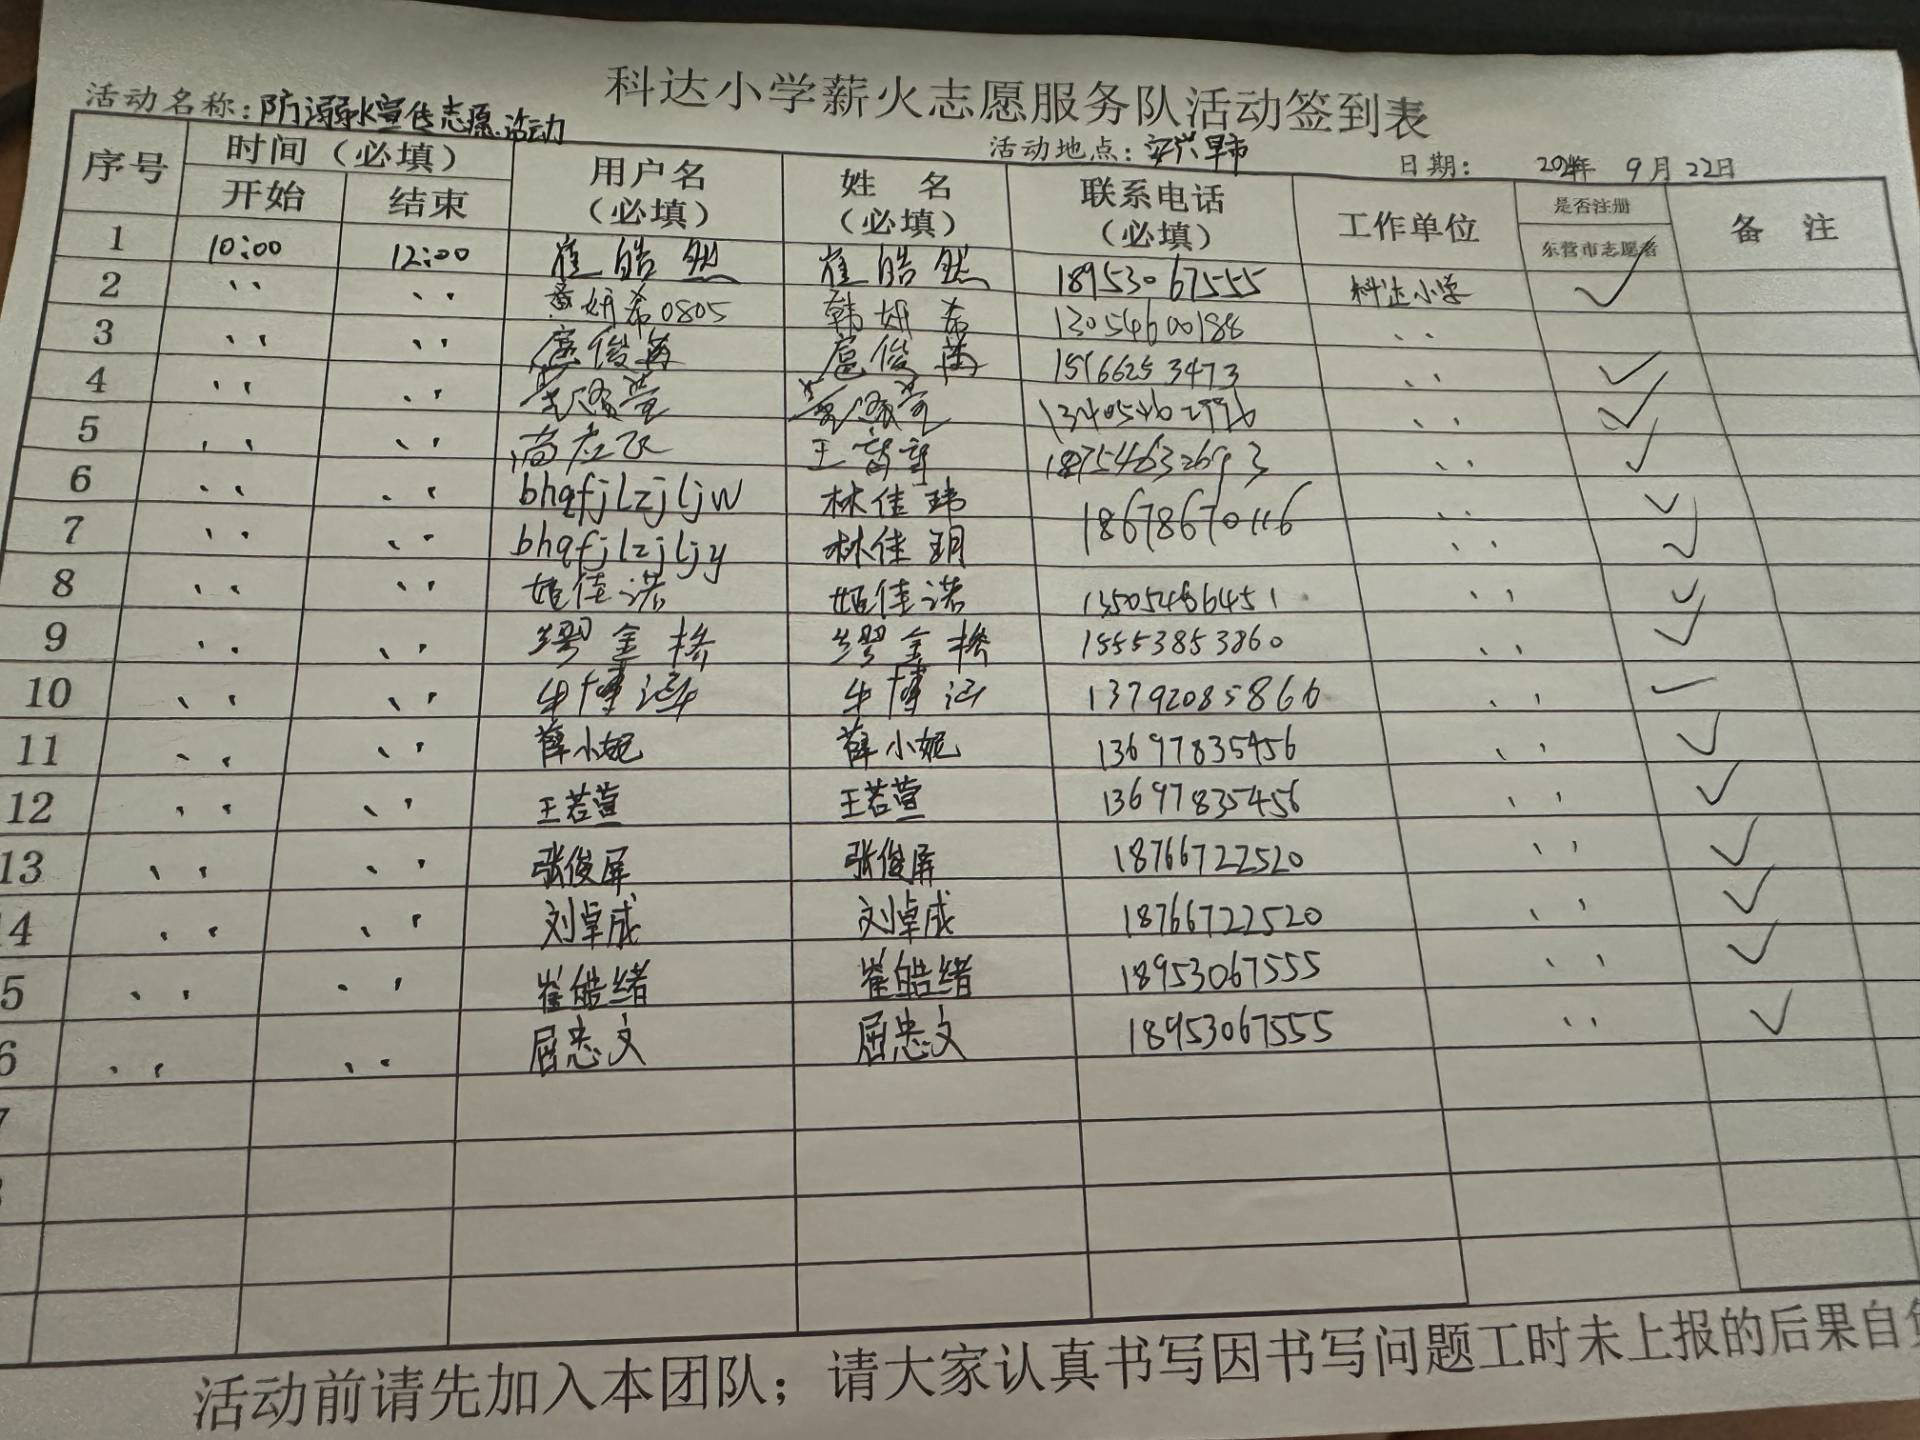 科达小学薪火志愿服务队活动签到表
活动名称：防溺水宣传志愿活动 活动地点：安兴早市 日期： 2024年 9月 22日
序号 时间（必填） 用户名（必填） 姓 名（必填） 联系电话（必填） 工作单位 是否注册东营市志愿者 备 注
开始 结束
1 10:00 12:00 崔皓然 崔皓然 18953067555 科达小学 ✓
2 〃 〃 妍希0805 韩妍希 13054600188 〃
3 〃 〃 俊 俊 15166253473 〃 ✓
4 〃 〃 〃 ✓
5 〃 〃 高 王 18754632693 〃 ✓
6 〃 〃 bhqfjlzjljw 林佳玮 18678670116 〃 ✓
7 〃 〃 bhqfjlzjljy 林佳玥 〃 ✓
8 〃 〃 姬佳诺 姬佳诺 13505486451 〃 ✓
9 〃 〃 缪金桥 缪金桥 15553853860 〃 ✓
10 〃 〃 牛博涵 牛博涵 13792085866 〃 ✓
11 〃 〃 薛小妮 薛小妮 13697835456 〃 ✓
12 〃 〃 王若萱 王若萱 13697835456 〃 ✓
13 〃 〃 张俊屏 张俊屏 18766722520 〃 ✓
4 〃 〃 刘卓成 刘卓成 18766722520 〃 ✓
5 〃 〃 崔皓绪 崔皓绪 18953067555 〃 ✓
6 〃 〃 屈忠文 屈忠文 18953067555 〃 ✓
活动前请先加入本团队；请大家认真书写因书写问题工时未上报的后果自